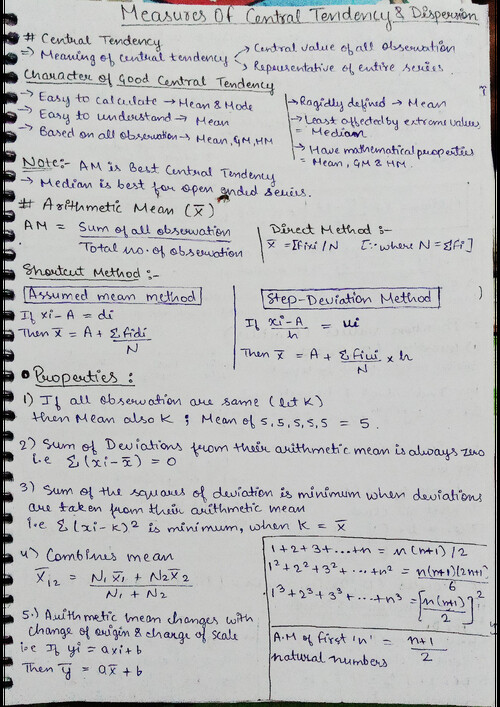 Measures Of Central Tendency & Dispersion
# Central Tendency
⇒ Meaning of central tendency → Central value of all observation
→ Representative of entire series.
Character of Good Central Tendency
→ Easy to calculate → Mean & Mode
→ Easy to understand → Mean
→ Based on all observation → Mean, GM, HM
→ Ragidly defined → Mean
→ Least affected by extreme values
= Median
→ Have mathematical properties
= Mean, GM & HM.
Note:- AM is Best Central Tendency
→ Median is best for open ended series.
# Arithmetic Mean (x̄)
AM = Sum of all observation / Total no. of observation
Direct Method :-
x̄ = Σfixi / N [∵ where N = Σfi]
Shortcut Method :-
Assumed mean method
If xi - A = di
Then x̄ = A + Σfidi / N
Step-Deviation Method
If xi - A / h = ui
Then x̄ = A + Σfiui / N × h
• Properties :
1) If all observation are same (let K)
then Mean also K ; Mean of 5, 5, 5, 5, 5 = 5.
2) Sum of Deviations from their arithmetic mean is always zero
i.e Σ(xi - x̄) = 0
3) Sum of the squares of deviation is minimum when deviations
are taken from their arithmetic mean
i.e Σ(xi - K)² is minimum, when K = x̄
4) Combines mean
x̄₁₂ = N₁x̄₁ + N₂x̄₂ / N₁ + N₂
5.) Arithmetic mean changes with
change of origin & change of scale
i.e If yi = axi + b
Then ȳ = ax̄ + b
1 + 2 + 3 + ... + n = n(n+1) / 2
1² + 2² + 3² + ... + n² = n(n+1)(2n+1) / 6
1³ + 2³ + 3³ + ... + n³ = [n(n+1) / 2]²
A.M of first 'n' natural numbers = n+1 / 2